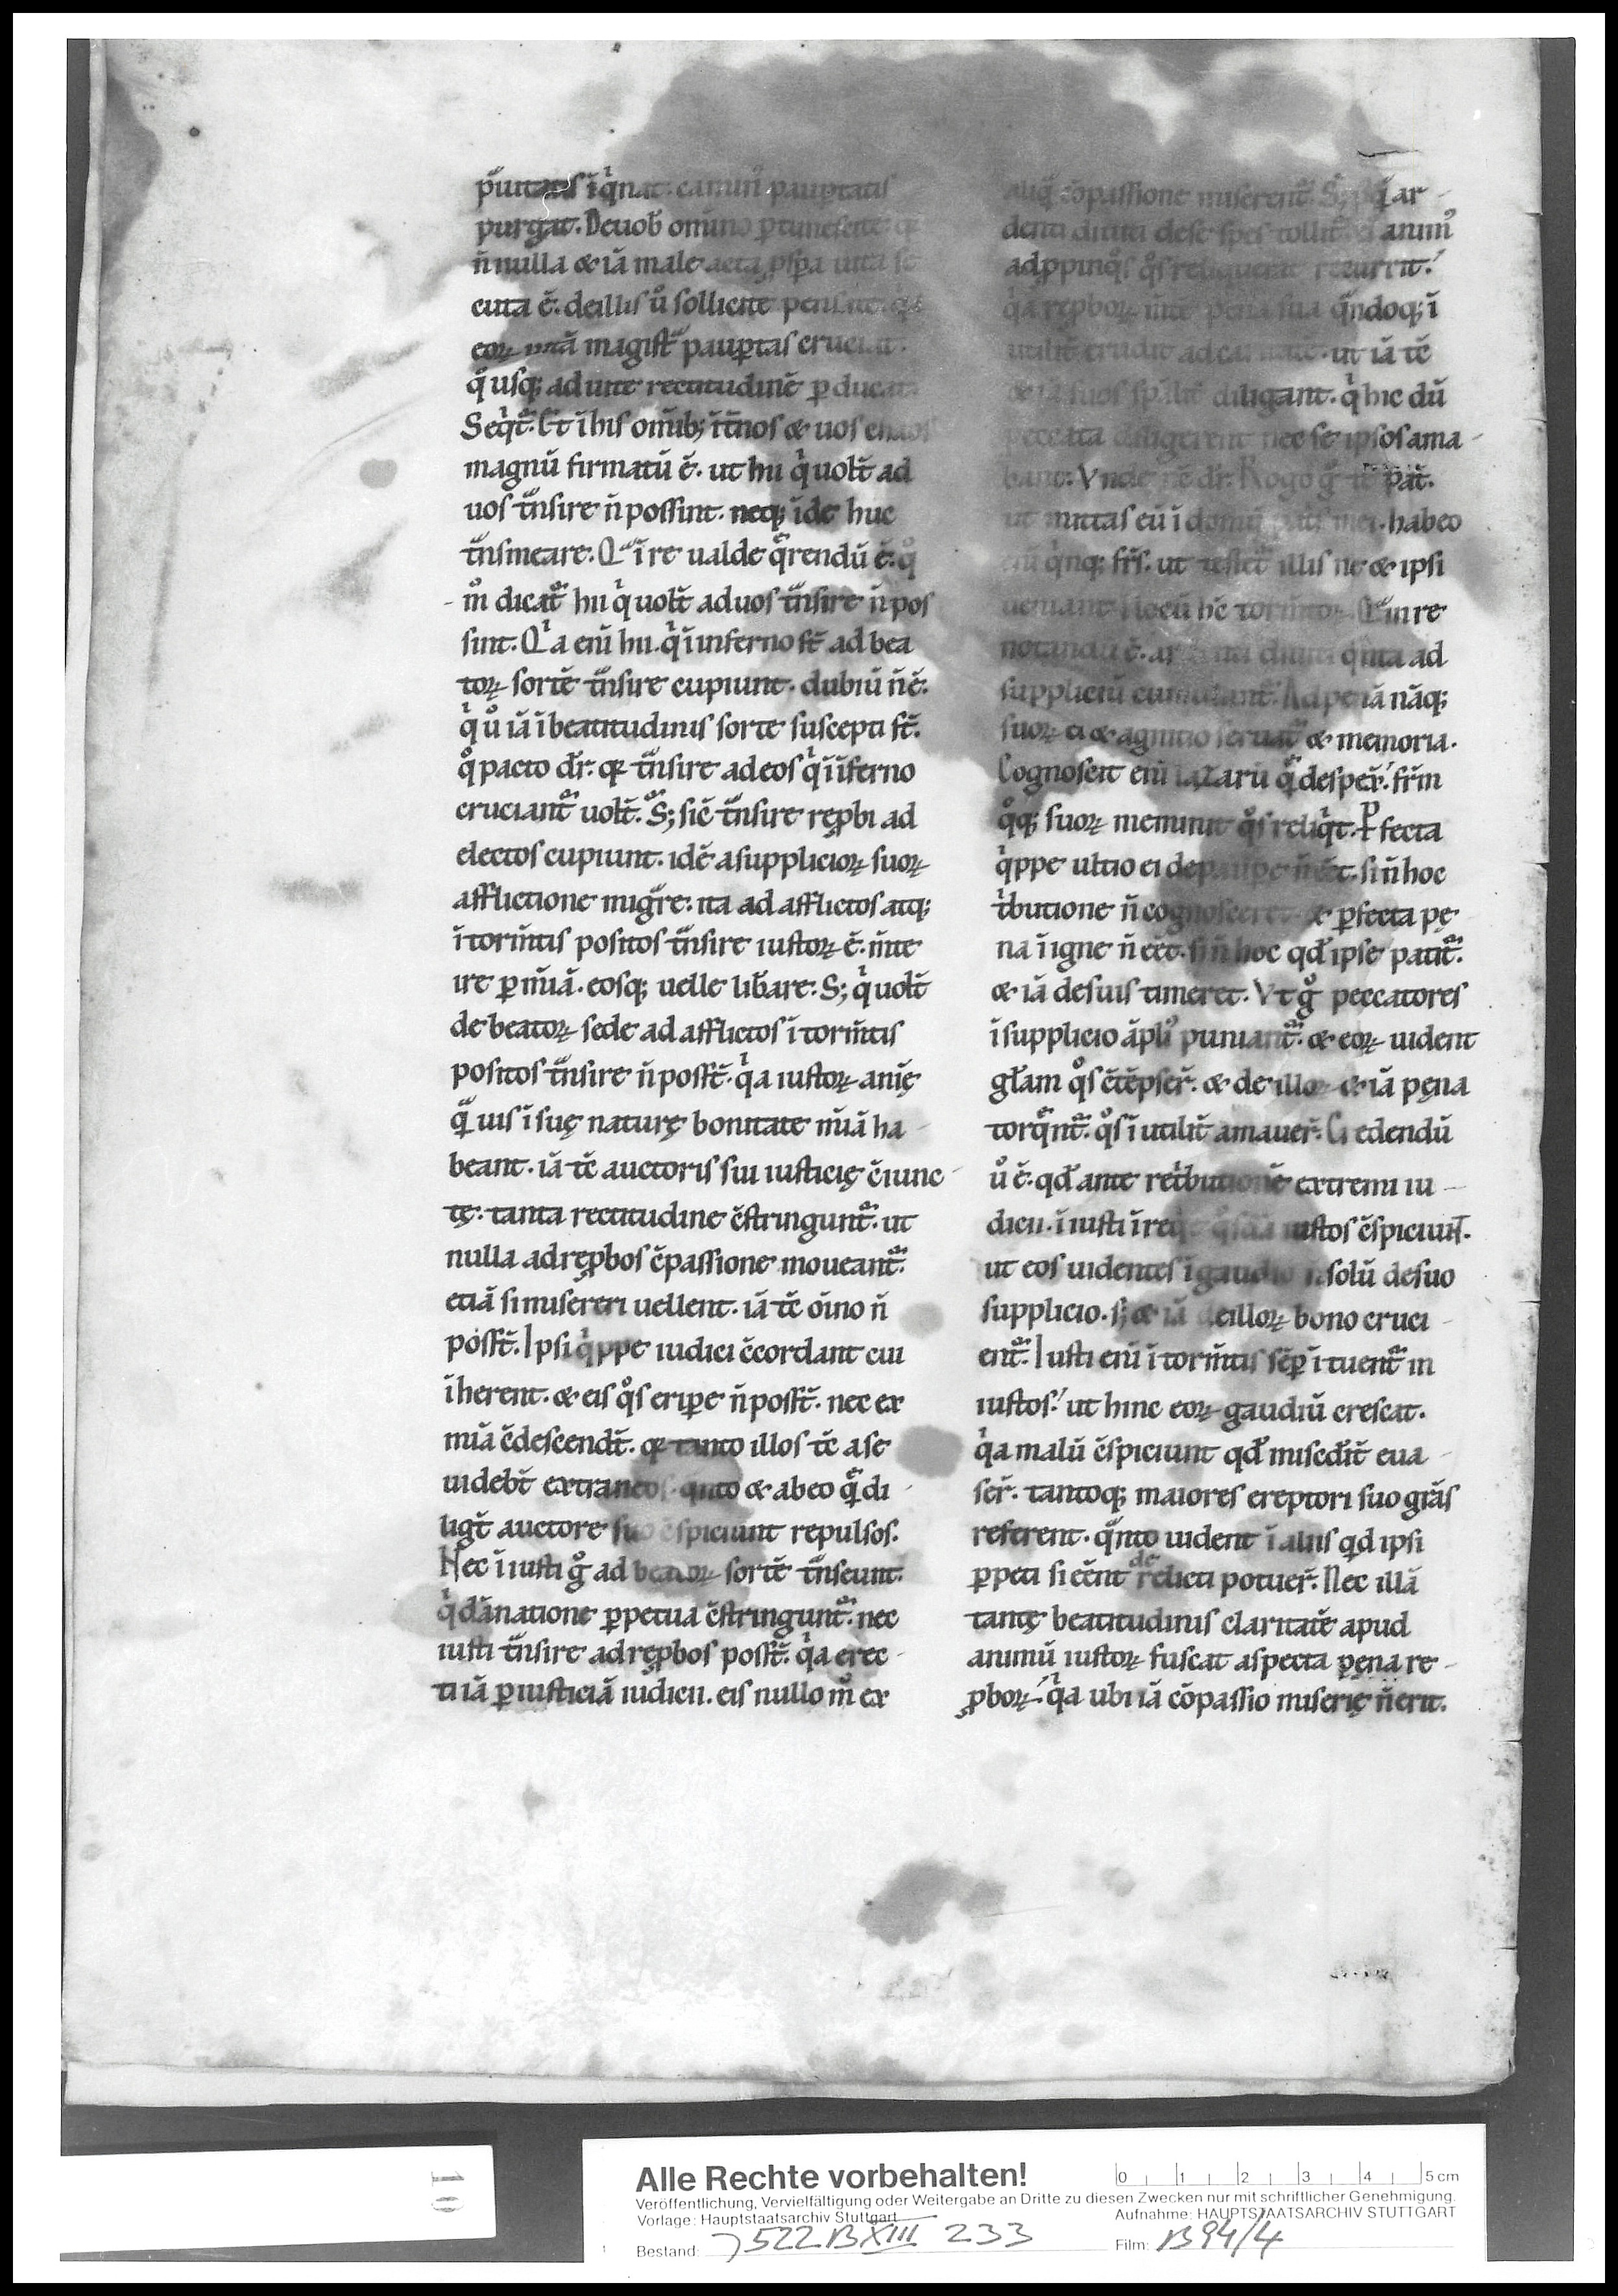 p̃uitatis īq̊nat. caminꝰ paup̱tatis
purgat. De uob̄ om̄ino p̱timescite
n̄ nulla & iā male acta ꝓsp̱a uita se
cuta ē. de illis ů sollicite pensate.
eoꝝ uitā magist̃ paup̱tas cruciat.
q̊usq; ad uite rectitudinē p̱ducat.
Seqit̃. Et ī his omīb; īt̃ nos & uos chaos
magnū firmatū ē. ut hii qͥ uolt̄ ad
uos t̃nsire n̄ possint. neq; īde huc
t̃nsmeare. Qͣ ī re ualde q̃rendū ē. q̊
m̊ dicat᷑ hii qͥ uolt̄ ad uos t̃nsire n̄ pos
sint. Qͥa enī hii. qͥ ī inferno st̄ ad bea
toꝝ sortē t̃nsire cupiunt. dubiū n̄ ē.
qͥ ů iā ī beatitudinis sorte suscepti st̄.
q̊ pacto dr̄. qꝛ t̃nsire ad eos qͥ ī iferno
cruciant᷑ uolt̄. S; sic̄ t̃nsire rep̱bi ad
electos cupiunt. idē a supplicioꝝ suoꝝ
afflictione migr̃e. ita ad afflictos atq;
ī torm̄tis positos t̃nsire iustoꝝ ē. m̄te
ire p̱ mīā. eosq; uelle lib̄are. S; qͥ uolt̄
de beatoꝝ sede ad afflictos ī torm̄tis
positos t̃nsire n̄ poss̄t. qͥa iustoꝝ anię
qͣuis ī suę naturę bonitate mīā ha
beant. iā tc̄ auctoris sui iusticię c̄iunc
tę. tanta rectitudine c̄stringunt᷑. ut
nulla ad reꝓbos c̄passione moueant᷑.
etiā si misereri uellent. iā tc̄ oīno n̄
poss̄t. Ipsi qͥppe iudici c̄cordant cui
īherent. & eis q̊s erip̱e n̄ poss̄t. nec ex
mīā c̄descendt̄. qꝛ tanto illos tc̄ a se
uidebt̄ extraneos. qͣnto & ab eo quē̃ di
ligt̄ auctore suo c̄spiciunt repulsos.
Nec ī iusti g̊ ad beatoꝝ sortē t̃nseunt.
qͥ dānatione p̱petua c̄stringunt᷑. nec
iusti t̃nsire ad reꝓbos poss̄t. qͥa erec
ti iā p̱ iusticiā iudicii. eis nullo m̊ ex
aliq̃ cōpassione miserent᷑. S; ar
denti diuiti de se spes tollit᷑ animꝰ
ad ꝓpinq̊s q̊s reliquerat recurrit.
qͥa reꝓboꝝ m̄te pena sua qͣndoq; ī
utilit̃ erudit ad caritatē. ut iā tc̄
& iā suos sp̄alit̃ diligant. qͥ hic dū
peccata diligerent nec se ipsos ama
bant. Vnde nc̄ dr̄. Rogo g̊ te pat̃.
ut mittas eū ī domū patris mei. habeo
enī qͥnq; fr̄s. ut testet᷑ illis ne & ipsi
ueniant ī locū hc̄ torm̄toꝝ. Qͣ in re
notandū ē. ardenti diuiti qͣnta ad
suppliciū cumulant᷑. Ad penā nāq;
suoꝝ ei & agnitio seruat᷑ & memoria.
Cognoscit enī lazarū quē̃ despex̄. fr̄m
q̊q; suoꝝ meminit q̊s reliqͥt. Pfecta
qͥppe ultio ei de paup̱e n̄ eēt. si n̄ hoc
t̃butione n̄ cognosceret. & p̱fecta pę
na ī igne n̄ eēt. si n̄ hoc qd̄ ipse patit᷑.
& iā de suis timeret. Vt g̊ peccatores
ī supplicio āpliꝰ puniant᷑. & eoꝝ uident
gl̄am q̊s c̄tēpser̄. & de illoꝝ & iā pęna
torquēnt᷑. q̊s ī utilit̃ amauer̄. Credendū
ů ē. qd̄ ante ret̃butionē extremi iu
dicii. ī iusti ī requie q̊sdā iustos c̄spiciunt.
ut eos uidentes ī gaudio n̄ solū de suo
supplicio. s; & iā de illoꝝ bono cruci
ent᷑. Iusti enī ī torm̄tis sēp̱ ī tuent᷑ in
iustos. ut hinc eoꝝ gaudiū crescat.
qͥa malū c̄spiciunt qd̄ miscdīt̃ eua
ser̄. tantoq; maiores ereptori suo grās
referent. qͣnto uident ī aliis qd ipsi
p̱peti si eēnt derelicti potuer̄. Nec illā
tantę beatitudinis claritatē apud
animū iustoꝝ fuscat aspecta pęna re
ꝓboꝝ. qͥa ubi iā cōpassio miserię n̄ erit.
10
Alle Rechte vorbehalten!
Veröffentlichung, Vervielfältigung oder Weitergabe an Dritte zu diesen Zwecken nur mit schriftlicher Genehmigung.
Vorlage: Hauptstaatsarchiv Stuttgart
Aufnahme: HAUPTSTAATSARCHIV STUTTGART
Bestand: J 522 B XIII 233
Film: B 94/4
0 1 2 3 4 5 cm